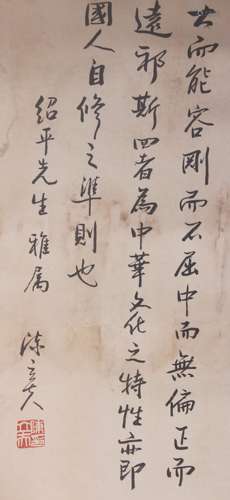 大而能容剛而不屈中而無偏正而
遠邪斯四者為中華文化之特性亦即
國人自修之準則也
紹平先生雅屬
陳立夫